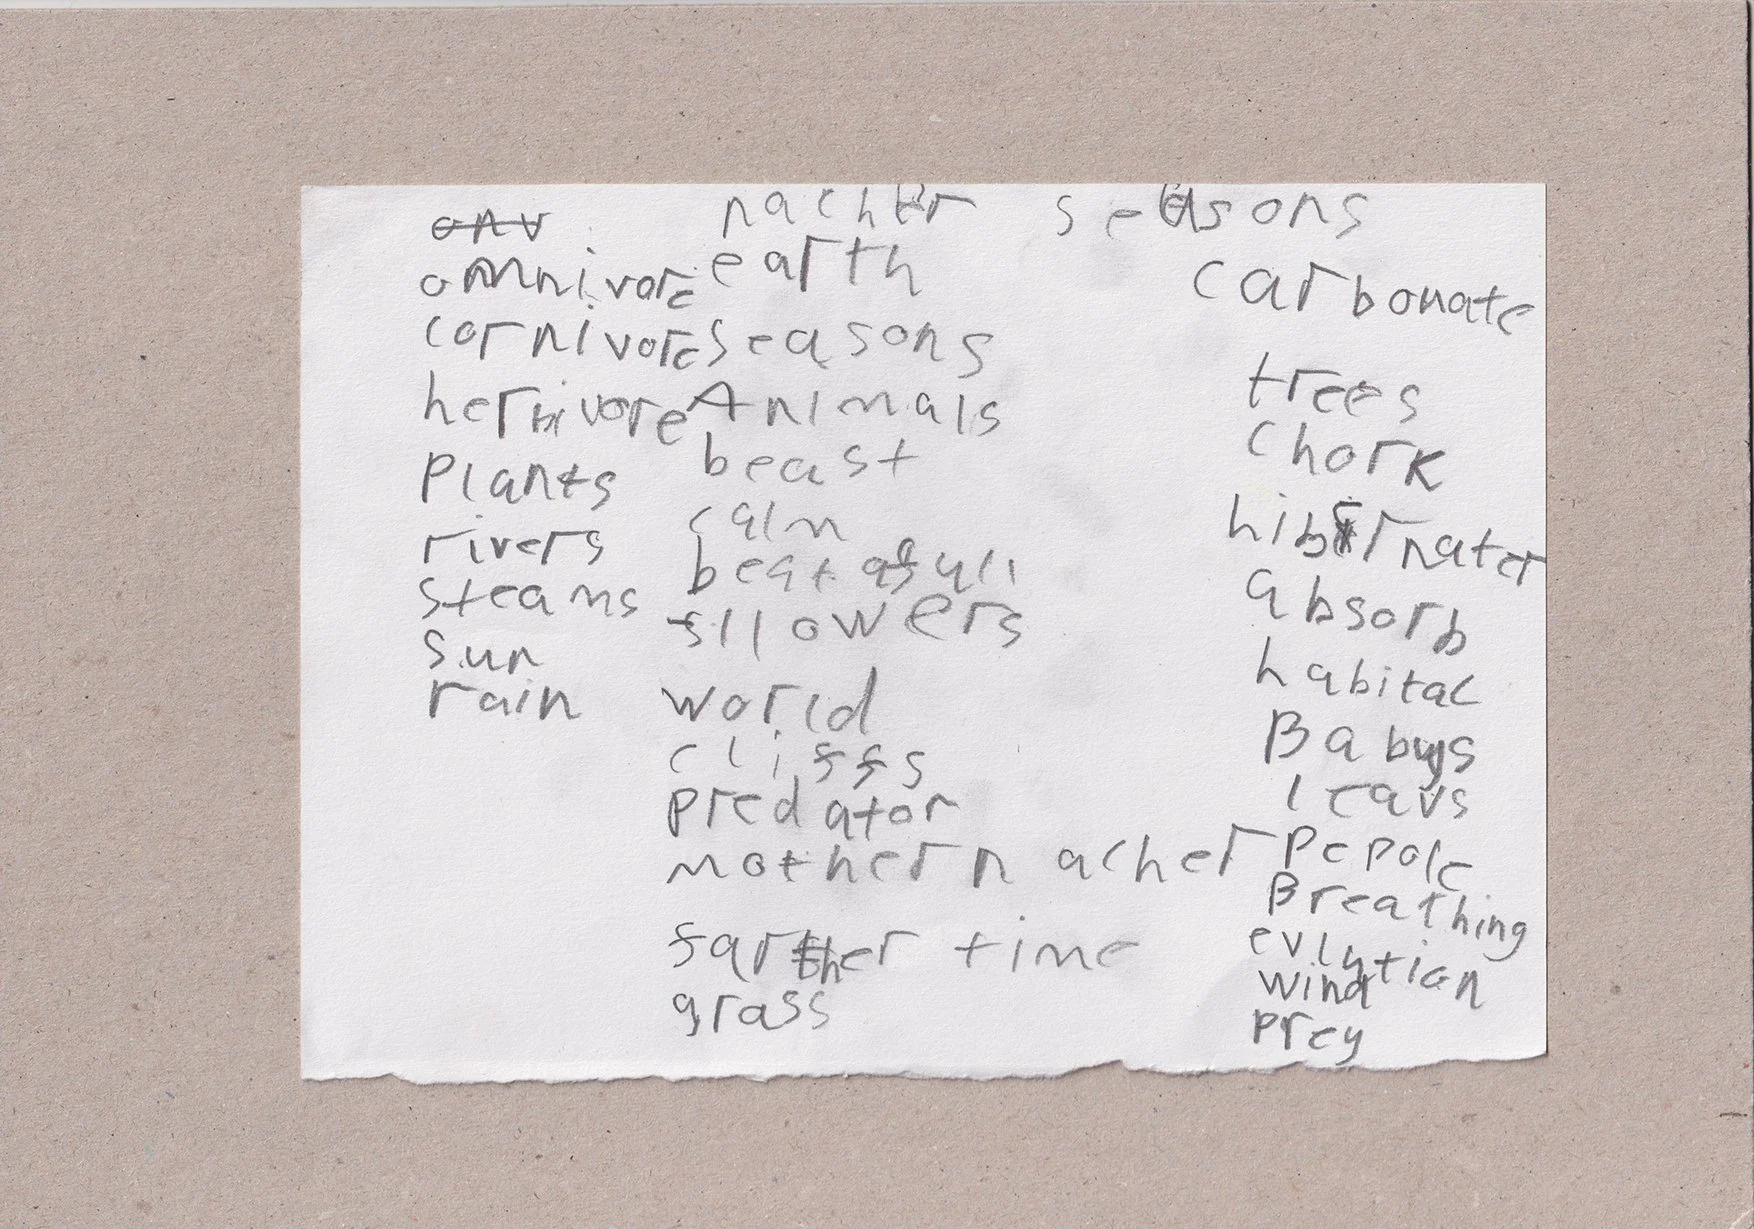 onv
omnivore
cornivore
herbivore
Plants
rivers
steams
sun
rain
nacher
earth
seasons
Animals
beast
calm
fllowers
world
cliffs
predator
mother nacher
farther time
grass
seasons
carbonate
trees
chork
hibernater
absorb
habitac
Babys
leavs
Pepole
Breathing
evlytian
wind
prey